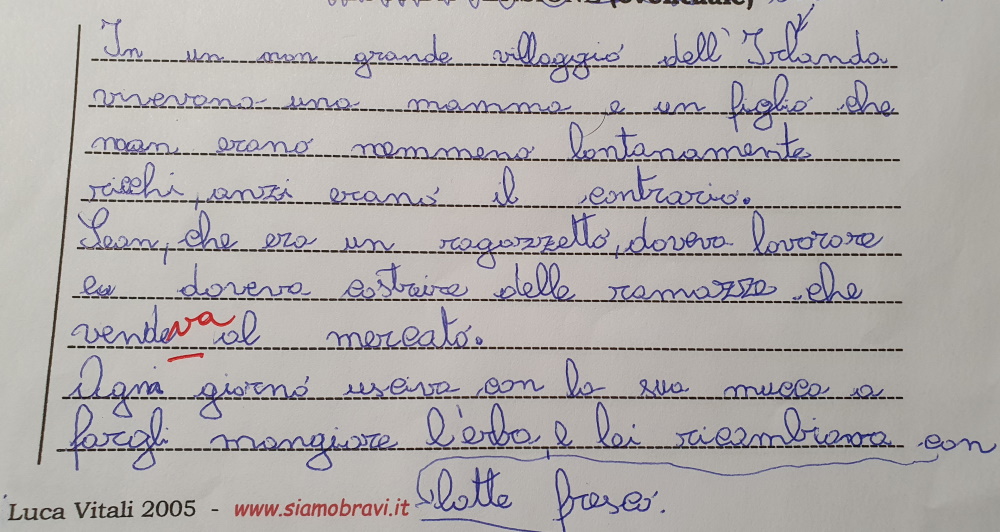 (eventuale)
In un non grande villaggio dell'Irlanda
vivevano una mamma e un figlio che
non erano nemmeno lontanamente
ricchi, anzi erano il contrario.
Sean, che era un ragazzetto, doveva lavorare
e doveva costruire delle ramazze che
vendeva al mercato.
Ogni giorno usciva con la sua mucca a
fargli mangiare l'erba, e lei ricambiava con
latte fresco.
Luca Vitali 2005 - www.siamobravi.it